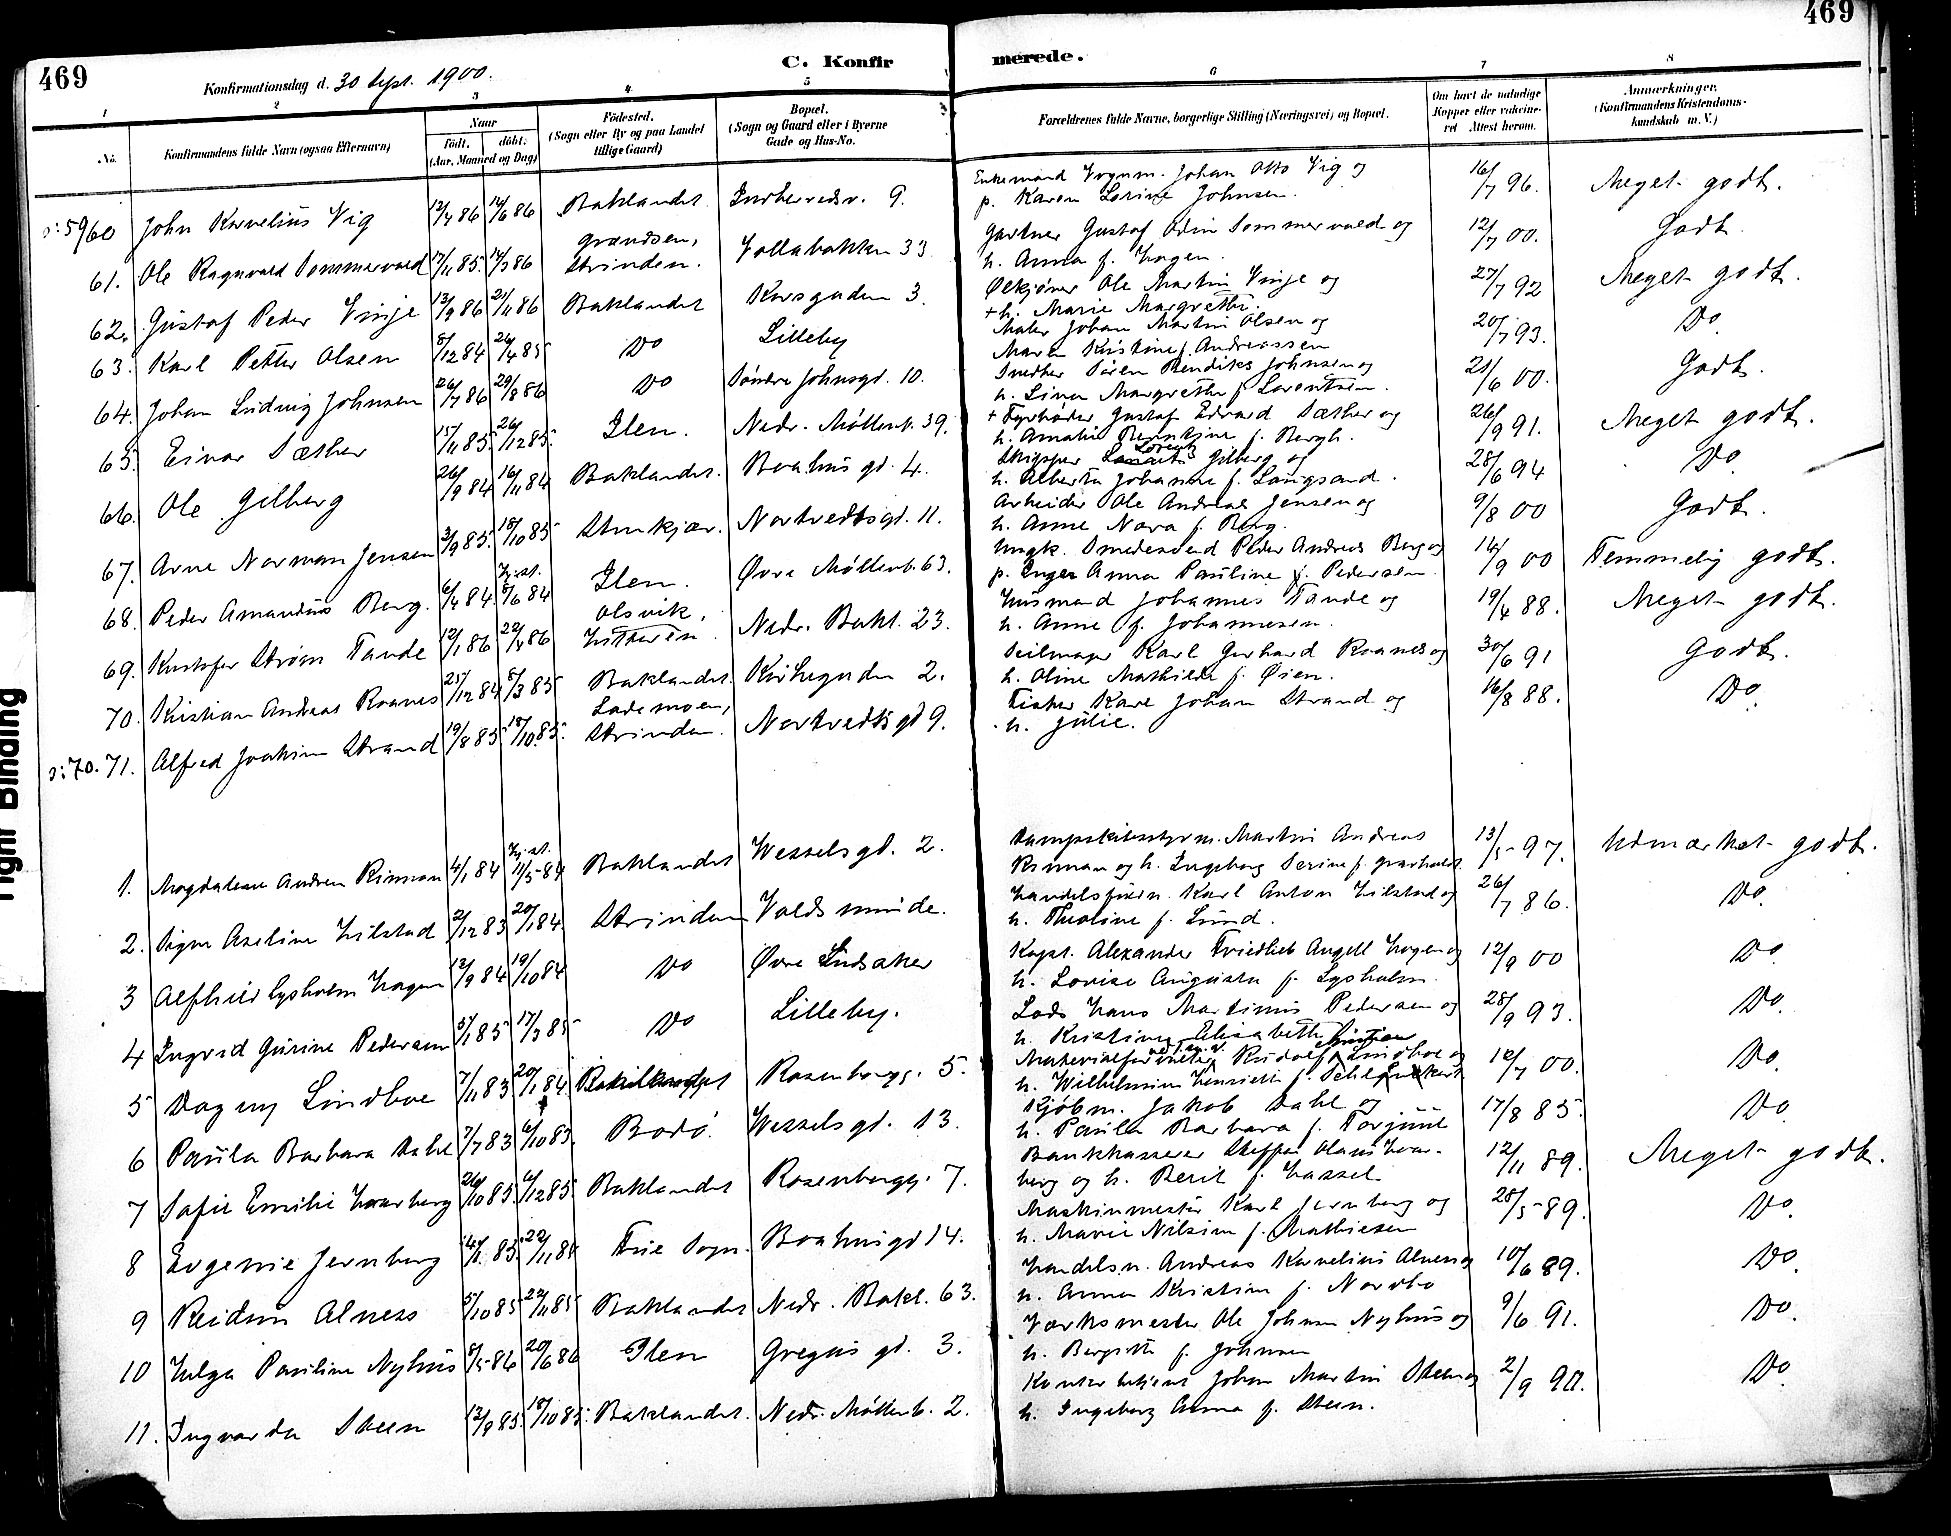 469
469
C. Konfirmerede.
Konfirmationsdag d. 30 Sept. 1900.
1 2 3 4 5 6 7 8
No. Konfirmandens fulde Navn (ogsaa Efternavn)
Naar født. døbt. (Aar, Maaned og Dag)
Fødested. (Sogn eller By og paa Landet tillige Gaard)
Bopæl. (Sogn og Gaard eller i Byerne Gade og Hus-No.
Forældrenes fulde Navne, borgerlige Stilling (Næringsvei) og Bopæl.
Om havt de naturlige Kopper eller vaccineret Attest herom.
Anmærkninger. (Konfirmandens Kristendomskundskab m. V.)
Enkemand Johan Otto Vig og
ɔ: 59 60 John Kornelius Vig 12/4 86 14/6 86 Baklandet Indherredsv. 9. p. Karen Serine Johnsen. 16/7 96. Meget godt.
Gartner Gustaf Odin Sommervold og
61. Ole Ragnvald Sommervold 17/11 85. 14/3 86 Strinden. Vollabakken 33 h. Anna f. Hagen. 12/7 00. Godt
Ølkjører Ole Martin Vinje og
62. Gustaf Peder Vinje 13/9 86 21/11 86 Baklandet Korsgaden 3. + h. Marie Margrethe. 27/7 92 Meget godt.
Maler Johan Martin Olsen og
63. Karl Petter Olsen 8/12 84 26/4 85 Do Lilleby Maren Kristine f. Andreassen 20/7 93. Do
Snedker Søren Bendiks Johnsen og
64. Johan Ludvig Johnsen 26/7 86 29/8 86 Do Søndre Johnsgd. 10. h. Lina Margrethe f. Lorentsen. 21/6 00. Godt.
+ Fyrbøder Gustaf Edvard Sæther og
65. Einar Sæther 15/11 85. 26/12 85. Ilen. Nedr. Møllenb. 39. h. Amalie Berntine f. Bergh. 26/9 91. Meget godt.
Skipper Gilberg og
66. Ole Gilberg 26/9 84 16/11 84 Baklandet. Baahus gd. 4. h. Alberta Johanne f. Langsand. 28/6 94 Do
Arbeider Ole Andreas Jensen og
67. Arne Norman Jensen 2/9 85. 18/10 85 Stenkjær. Nortvedtsgd. 11. h. Anne Nora f. Berg. 9/8 00 Godt.
Ungk. Smedesvend Peder Andreas Berg og
68. Peder Amandus Berg. 6/4 84. Hj. st. 8/6 84 Ilen. Øvre Møllenb. 63. p. Inger Anna Pauline f. Pedersen. 14/9 00 Temmelig godt.
Olsvik, Husmand Johannes Tande og
69. Kristofer Strøm Tande 12/1 86 22/4 86 Hitteren. Nedr. Bakl. 23. h. Anne f. Johannesen. 19/4 88. Meget godt.
Seilmager Karl Gerhard Raanes og
70. Kristian Andreas Raanes 25/12 84 8/3 85 Baklandet. Kirkegaden 2. h. Oline Mathilde f. Øien. 30/6 91 Godt.
Lademoen, Fisker Karl Johan Strand og
ɔ: 70. 71. Alfred Joakim Strand 19/8 85 18/10 85. Strinden. Nortvedtsgd 9. h. Julie. 16/8 88. Do
Dampskibsstyrm. Martin Andreas
1. Magdalene Andrea Rinnan 4/1 84 Hj. st. 11/5 84 Baklandet Wesselsgd. 2. Rinnan og h. Ingeborg Serine f. 13/5 97. Udmærket godt.
Karl Anton Hilstad og
2. Signe Aseline Hilstad 2/12 83 20/1 84. Strinden Voldsminde. h. Theoline f. Lund. 26/7 86. Do
Kapt. Alexander Friedlieb Angell Hagen og
3 Alfhild Lysholm Hagen 12/9 84 19/10 84 Do Øvre Lidsaker h. Lovise Augusta f. Lysholm. 12/9 00 Do
Lods Hans Martinus Pedersen og
4 Ingrid Gurine Pedersen 5/1 85 17/3 85 Do Lilleby. h. Kristine Elisabeth 28/9 93. Do
Materialforvalter Rudolf Lindboe og
5 Dagny Lindboe 7/11 83. 20/1 84. Rosenborgg. 5. h. Wilhelmine Henriette f. 12/7 00. Do
Kjøbm. Jakob Dahl og
6 Paula Barbara Dahl 7/7 83 6/10 83. Bodø. Wesselsgd. 13. h. Paula Barbara f. Torjuul 17/8 85. Do
Bankkasserer Steffen Olaus Hvar-
7 Sofie Emilie Hvarberg 26/10 85. 6/12 85 Baklandet Rosenborgg. 7. berg og h. Berit f. Hassel 12/11 89. Meget godt.
Maskinmester Karl Jernberg og
8 Evgenie Jernberg 4/1 85. 22/11 85 Frue Sogn. Baahusgd 14. h. Marie Nilsine f. Mathiesen 28/5 89. Do
Handelsm. Andreas Kornelius Alness og
9 Reidun Alness 5/10 85. 22/11 85 Baklandet Nedr. Bakl. 63. h. Anna Kristine f. Nordbo 10/6 89. Do
Værksmester Ole Johan Nyhus og
10 Helga Pauline Nyhus 8/5 86 20/6 86 Ilen Gregus gd. 3. h. Bergitte f. Johnsen 9/6 91. Do
Kontorbetjent Johan Martin Steen og
11. Ingvarda Steen 12/9 85. 18/10 85. Baklandet. Nedr. Møllenb. 2. h. Ingeborg Anna f. Steen. 2/9 90. Do
Tight Binding